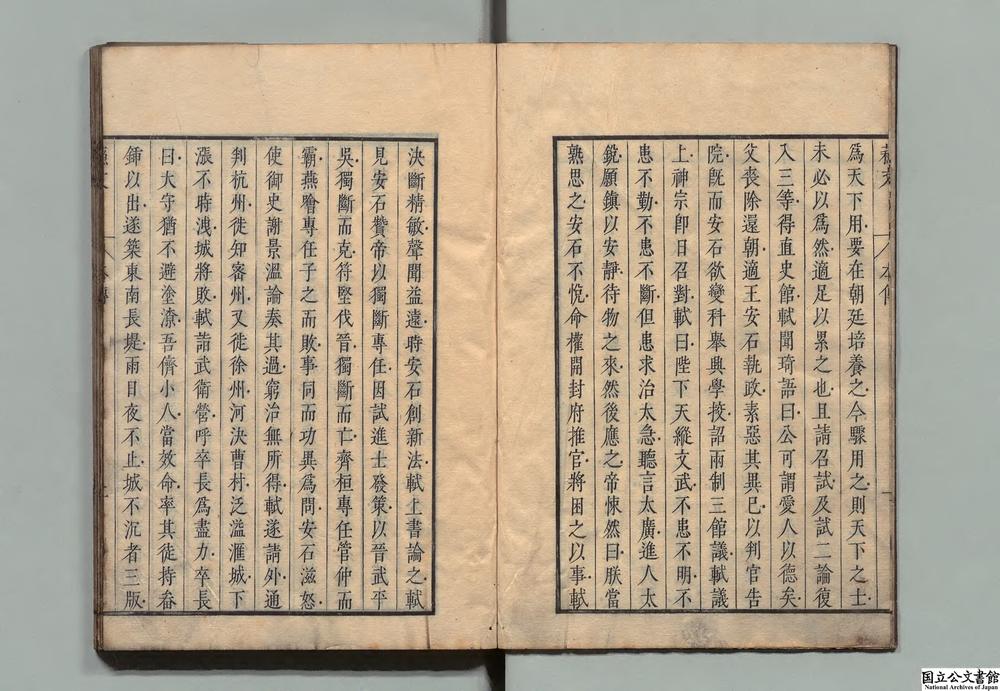 爲天下用要在朝廷培養之今驟用之則天下之士
未必以爲然適足以累之也且請召試及試二論復
入三等得直史館軾聞琦語曰公可謂愛人以德矣
父喪除還朝適王安石執政素惡其異已以判官告
院旣而安石欲變科舉典學挍詔兩制三館議軾議
上神宗卽日召對軾曰陛下天縱文武不患不明不
患不勤不患不斷但患求治太急聽言太廣進人太
銳願鎮以安靜待物之來然後應之帝悚然曰朕當
熟思之安石不悅命權開封府推官將困之以事軾
決斷精敏聲聞益遠時安石創新法軾上書論之軾
見安石贊帝以獨斷專任因試進士發策以晉武平
吳獨斷而克符堅伐晉獨斷而亡齊桓專任管仲而
霸燕噲專任子之而敗事同而功異爲問安石滋怒
使御史謝景溫論奏其過窮治無所得軾遂請外通
判杭州徙知密州又徙徐州河決曹村泛溢滙城下
漲不時洩城將敗軾詣武衛營呼卒長爲盡力卒長
曰大守猶不避塗潦吾儕小人當效命率其徒持畚
鍤以出遂築東南長堤雨日夜不止城不沉者三版
国立公文書館
National Archives of Japan